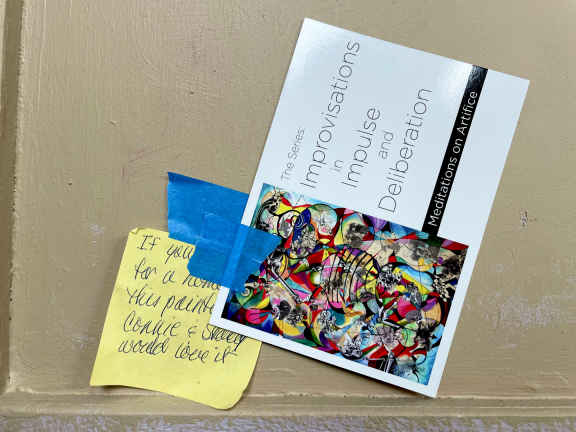 The Series:
Improvisations
in
Impulse
and
Deliberation
Meditations on Artifice
If you
for a
this paint
Connie &
would love it